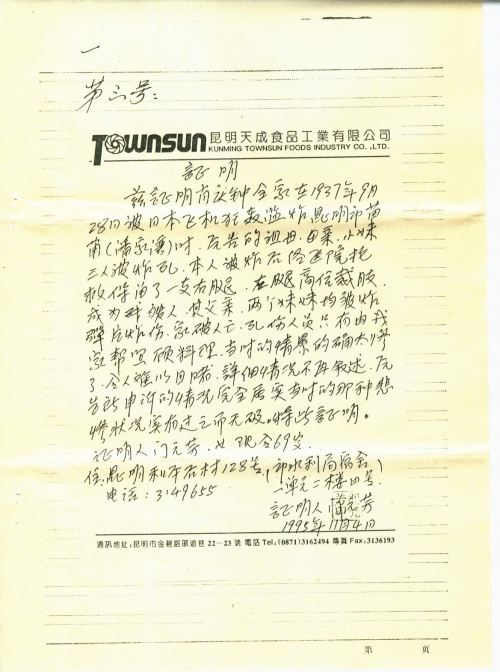 一
第三号:
TOWNSUN 昆明天成食品工業有限公司
KUNMING TOWNSUN FOODS INDUSTRY CO., LTD.
証明
兹証明肖庆钟全家在1937年9月
28日被日本飞机狂轰滥炸昆明市苗
甫(潘家湾)时.原告的祖母.母亲.小妹
三人被炸死.本人被炸后经医院抢
救保留了一支右腿.左腿高位截肢
成为残疾人.其父亲.两个妹妹均被炸
弹片炸伤.家破人亡.死伤人员只有由我
家帮照顾料理.当时的情景的确太惨
了.令人难以目睹.詳细情况不再叙述.原
告所申诉的情况完全属实当时的那种悲
惨状况实有过之而无.特此証明。
证明人门元芳.女.现今69岁.
住.昆明 村128号.(市水利局宿舍
一单元二楼四号.)
电话:3149655
証明人 芳
1995年11月4日
通訊地址:昆明市金碧路 巷 22—23 號 電話 Tel:(0871)3162494 傳真 Fax:3136193
第 頁